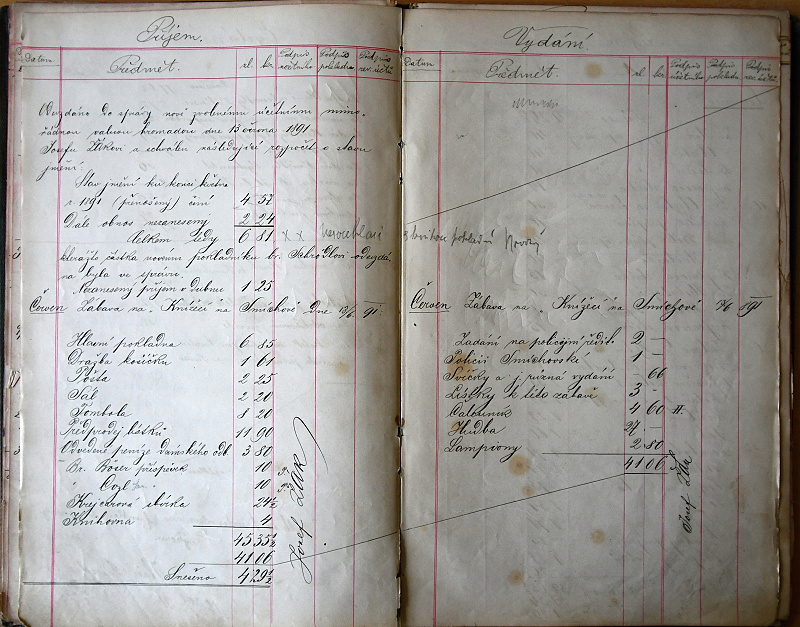 Příjem.
Datum Předmět. zl. kr. Podpis účetního Podpis pokladn. Podpis rev. účtů
Odevzdáno do správy nově zvolenému účetnímu mimo-
řádnou valnou hromadou dne 13 června 1891
Josefu Žákovi a schválen následující rozpočet o stavu
jmění:
Stav jmění ku konci května
r. 1891 (přenešený) činí 4 57
Dále obnos nezanesený 2 24
Celkem tedy 6 81 x x
kterážto částka novému pokladníku br. Schrödlovi odevzdá-
na byla ve správu.
Nezanesený příjem v dubnu 1 25
Červen Zábava na „Knížecí" na Smíchově dne 13/6 91
Hlavní pokladna 6 85
Dražba košíčku 1 61
Pošta 2 25
Sál 2 20
Tombola 8 20
Předprodej lístků 11 90
Odvedené peníze dámského odb. 3 80
Br. Boser příspěvek 10
" Gogl " 10
Krejcarová sbírka 24½
Knihovna 4
45 35½
41 06
Sneseno 4 29½
Josef Žák
Vydání
Datum Předmět. zl. kr. Podpis účetního Podpis pokladn. Podpis rev. účtů
Červen Zábava na „Knížecí" na Smíchově 13/6 891
Žádání na policejní ředit. 2 –
Policii Smíchovské 1 –
Svíčky a j. různá vydání – 66
Lístky k této zábavě 3 –
Čalouník 4 60 II.
Hudba 27 –
Lampiony 2 80
41 06
Josef Žák